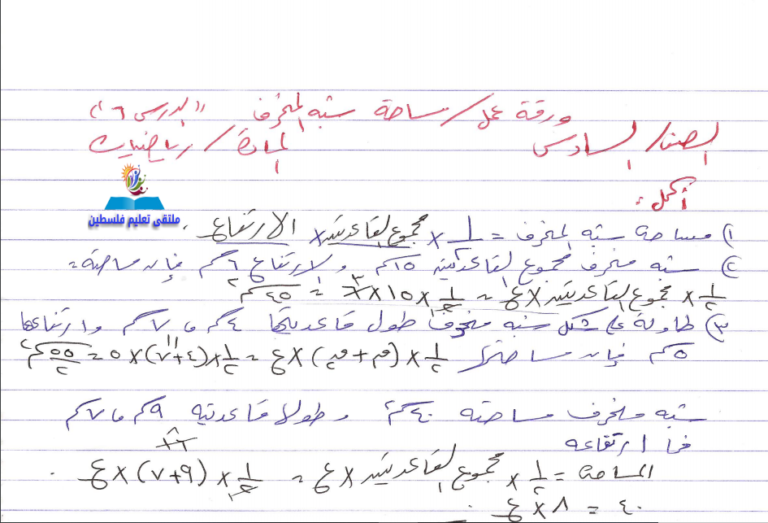 ورقة عمل / مساحة شبه المنحرف "الدرس ٦"
الصف / السادس المادة / رياضيات
أكمل :
ملتقى تعليم فلسطين
١) مساحة شبه المنحرف = ١/٢ × مجموع القاعدتين × الارتفاع .
٢) شبه منحرف مجموع القاعدتين ١٥سم والارتفاع ٦سم فإن مساحته =
١/٢ × مجموع القاعدتين × ع = ١/٢ × ١٥ × ٦ ٣ = ٤٥سم٢
٣) طاولة على شكل شبه منحرف طول قاعدتيها ٤سم ، ٧سم وارتفاعها
٥سم فإن مساحتها ١/٢ × (ق١ + ق٢) × ع = ١/٢ × (٤+٧) ١١ × ٥ = ٥٥/٢ سم٢
شبه منحرف مساحته ٤٠سم٢ وطولا قاعدتيه ٩سم ، ٧سم
فما ارتفاعه
المساحة = ١/٢ × مجموع القاعدتين × ع = ١/٢ × (٩+٧) ١٦ ٨ × ع .
٤٠ = ٨ × ع .